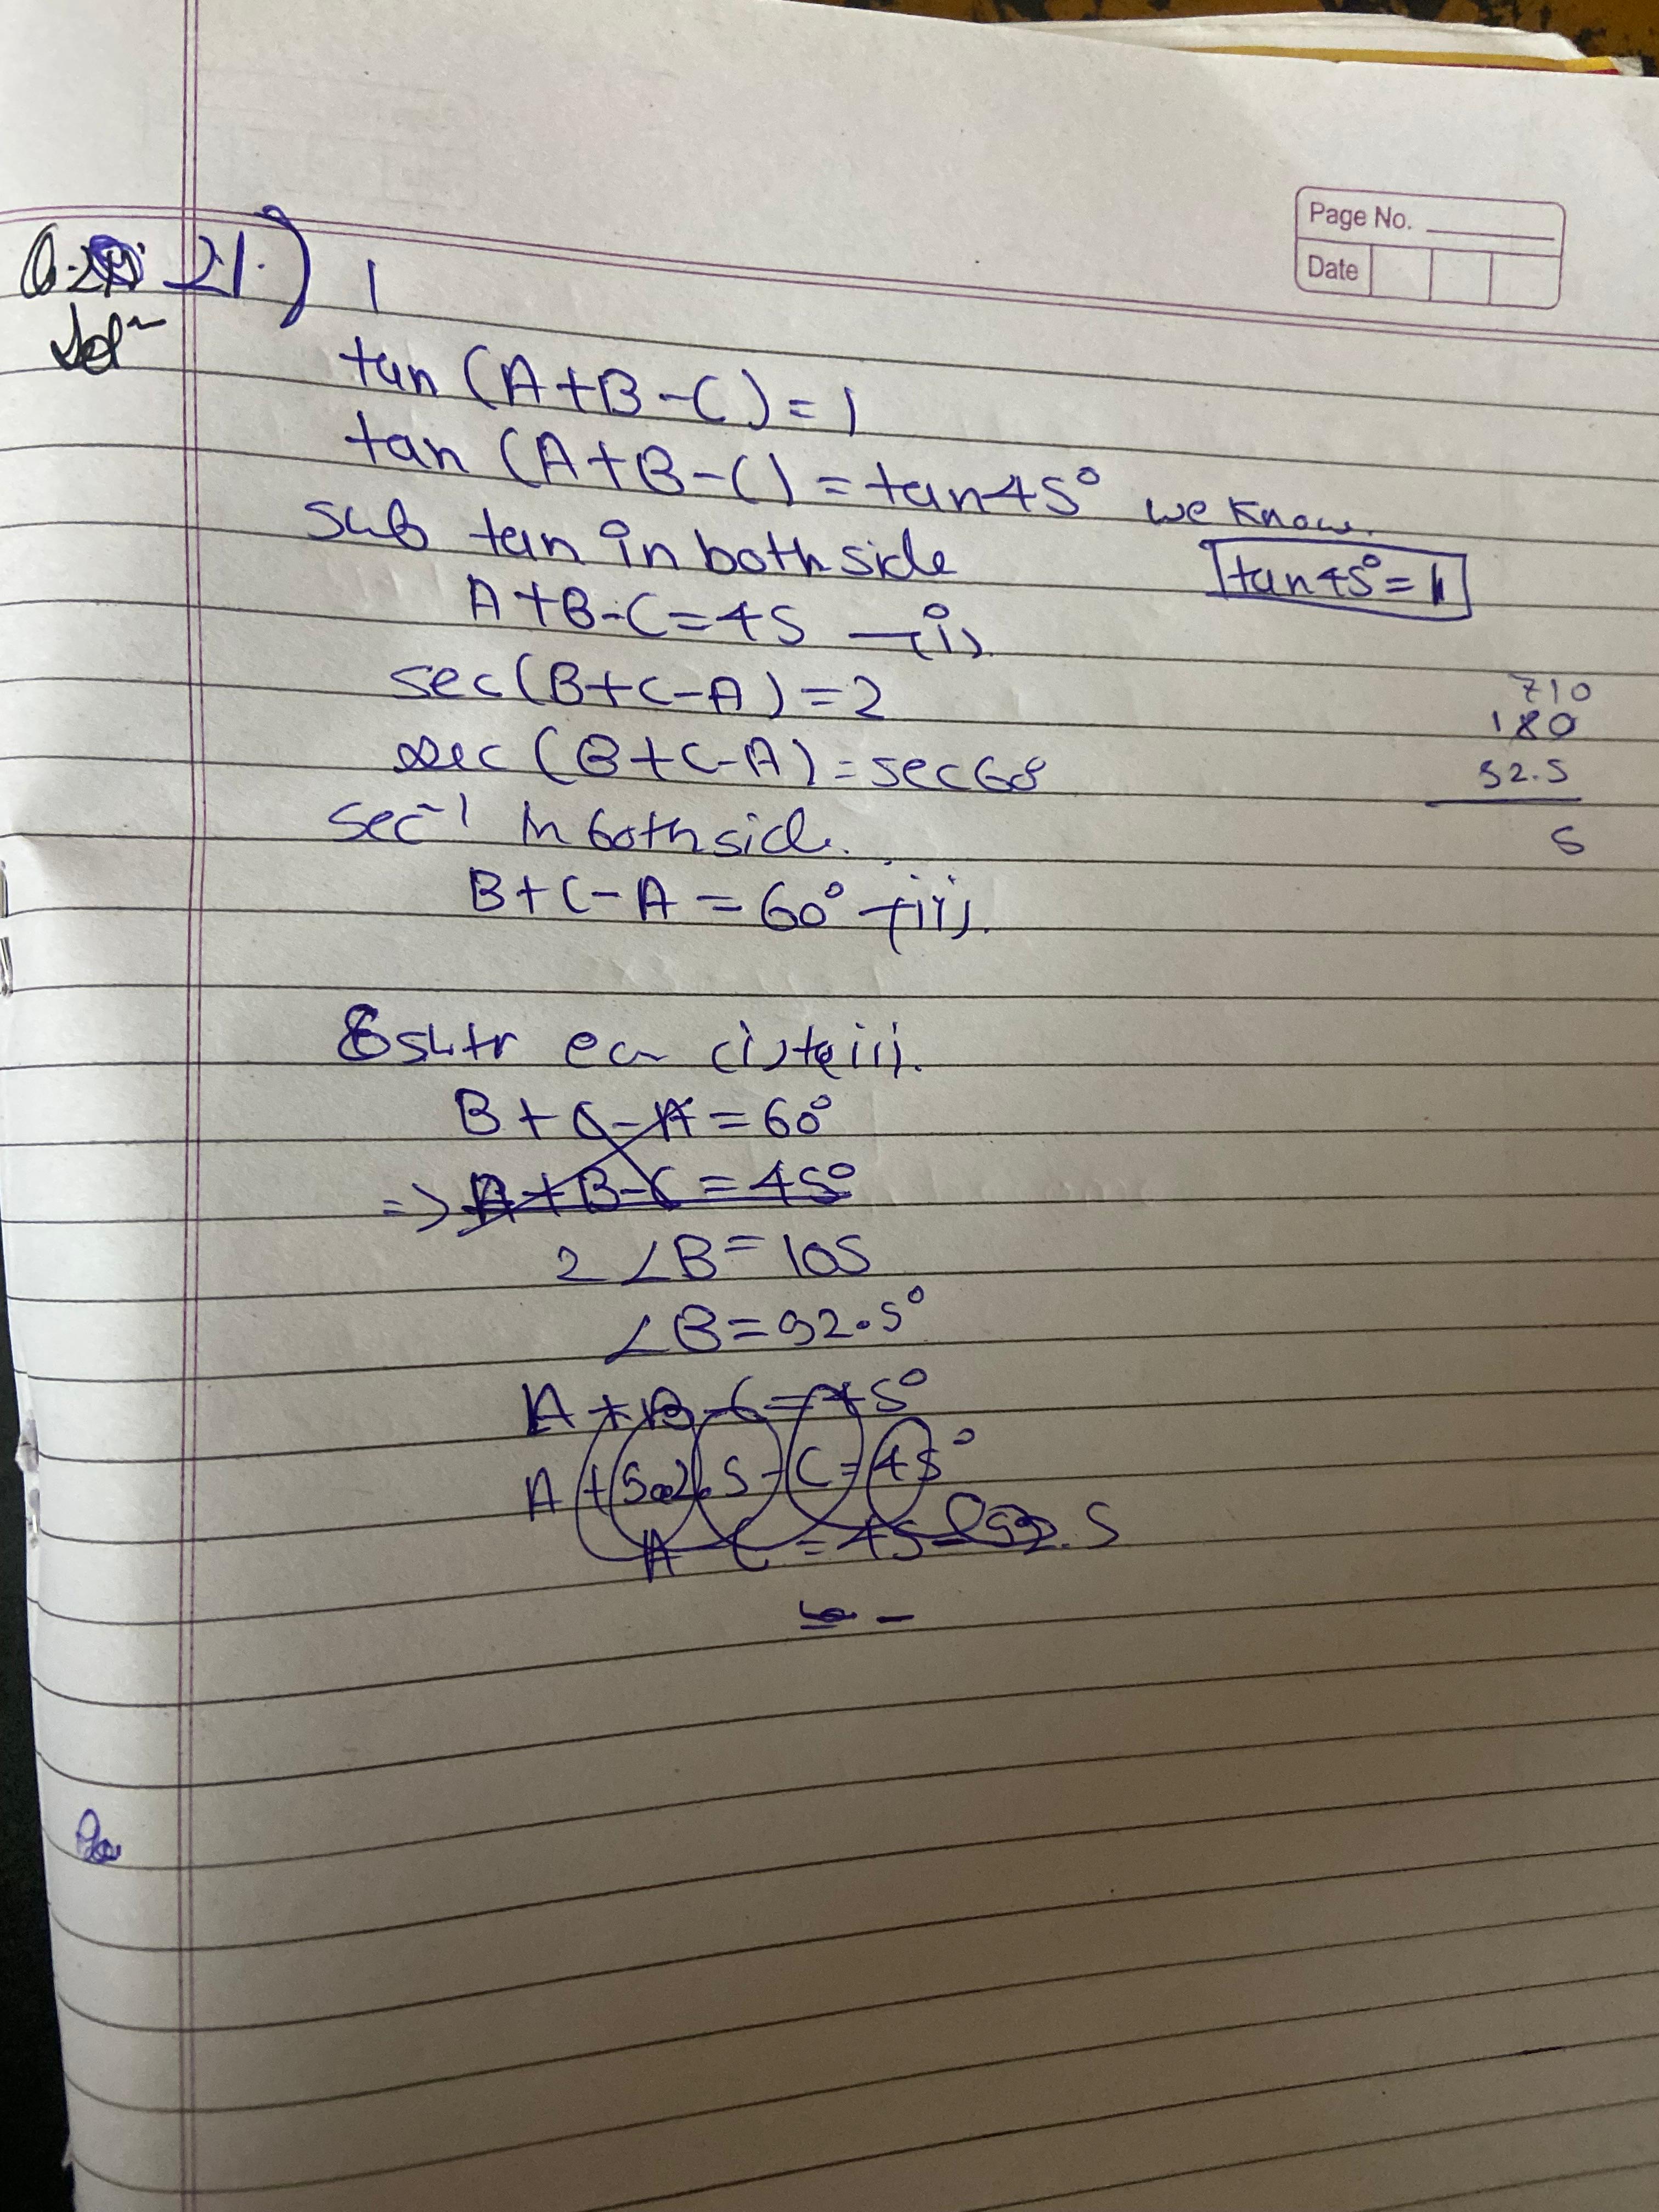 Page No.
Date
21.) 1
Sol
tan (A+B-C) = 1
tan (A+B-C) = tan45° we know.
sub tan in both side
tan45° = 1
A+B-C=45 -(i)
sec(B+C-A) = 2
710
180
sec (B+C-A) = sec60
52.5
5
sec⁻¹ in both side.
B+C-A = 60° -(ii).
(i) (ii).
B+C-A = 60°
=> A+B-C = 45°
2 ∠B = 105
∠B = 52.5°
A+B-C = 45°
A+52.5-C=45°
A C = 45-52.5